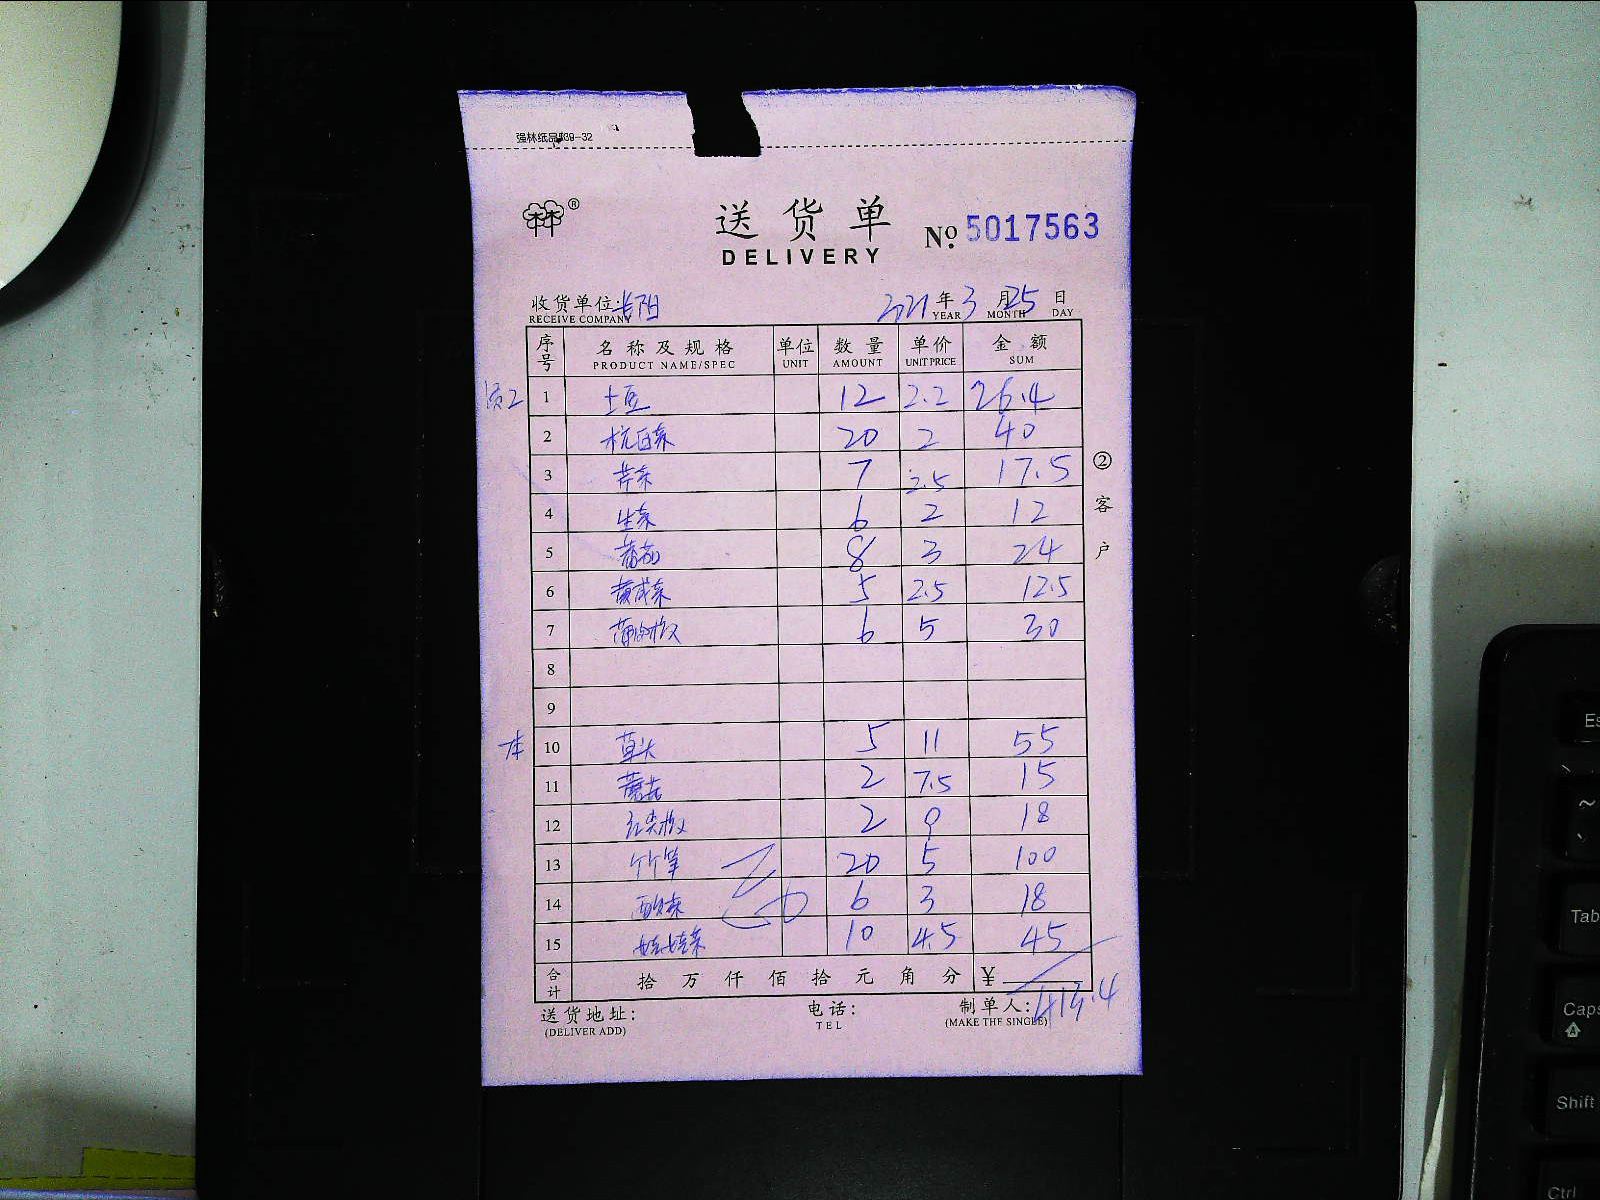 强林纸品 939-32
®
送货单
DELIVERY
№ 5017563
收货单位: 长阳 2021 年 3 月 25 日
RECEIVE COMPANY YEAR MONTH DAY
序号 名称及规格 单位 数量 单价 金额
PRODUCT NAME/SPEC UNIT AMOUNT UNIT PRICE SUM
1 土豆 12 2.2 26.4
2 杭白菜 20 2 40
3 芹菜 7 2.5 17.5
4 生菜 6 2 12
5 番茄 8 3 24
6 5 2.5 12.5
7 6 5 30
8
9
10 草头 5 11 55
11 蘑菇 2 7.5 15
12 红尖椒 2 9 18
13 竹笋 20 5 100
14 酸菜 6 3 18
15 娃娃菜 10 4.5 45
合计 拾 万 仟 佰 拾 元 角 分 ¥ 413.4
送货地址: 电话: 制单人:
(DELIVER ADD) TEL (MAKE THE SINGLE)
② 客户
Tab
Caps
Shift
Ctrl